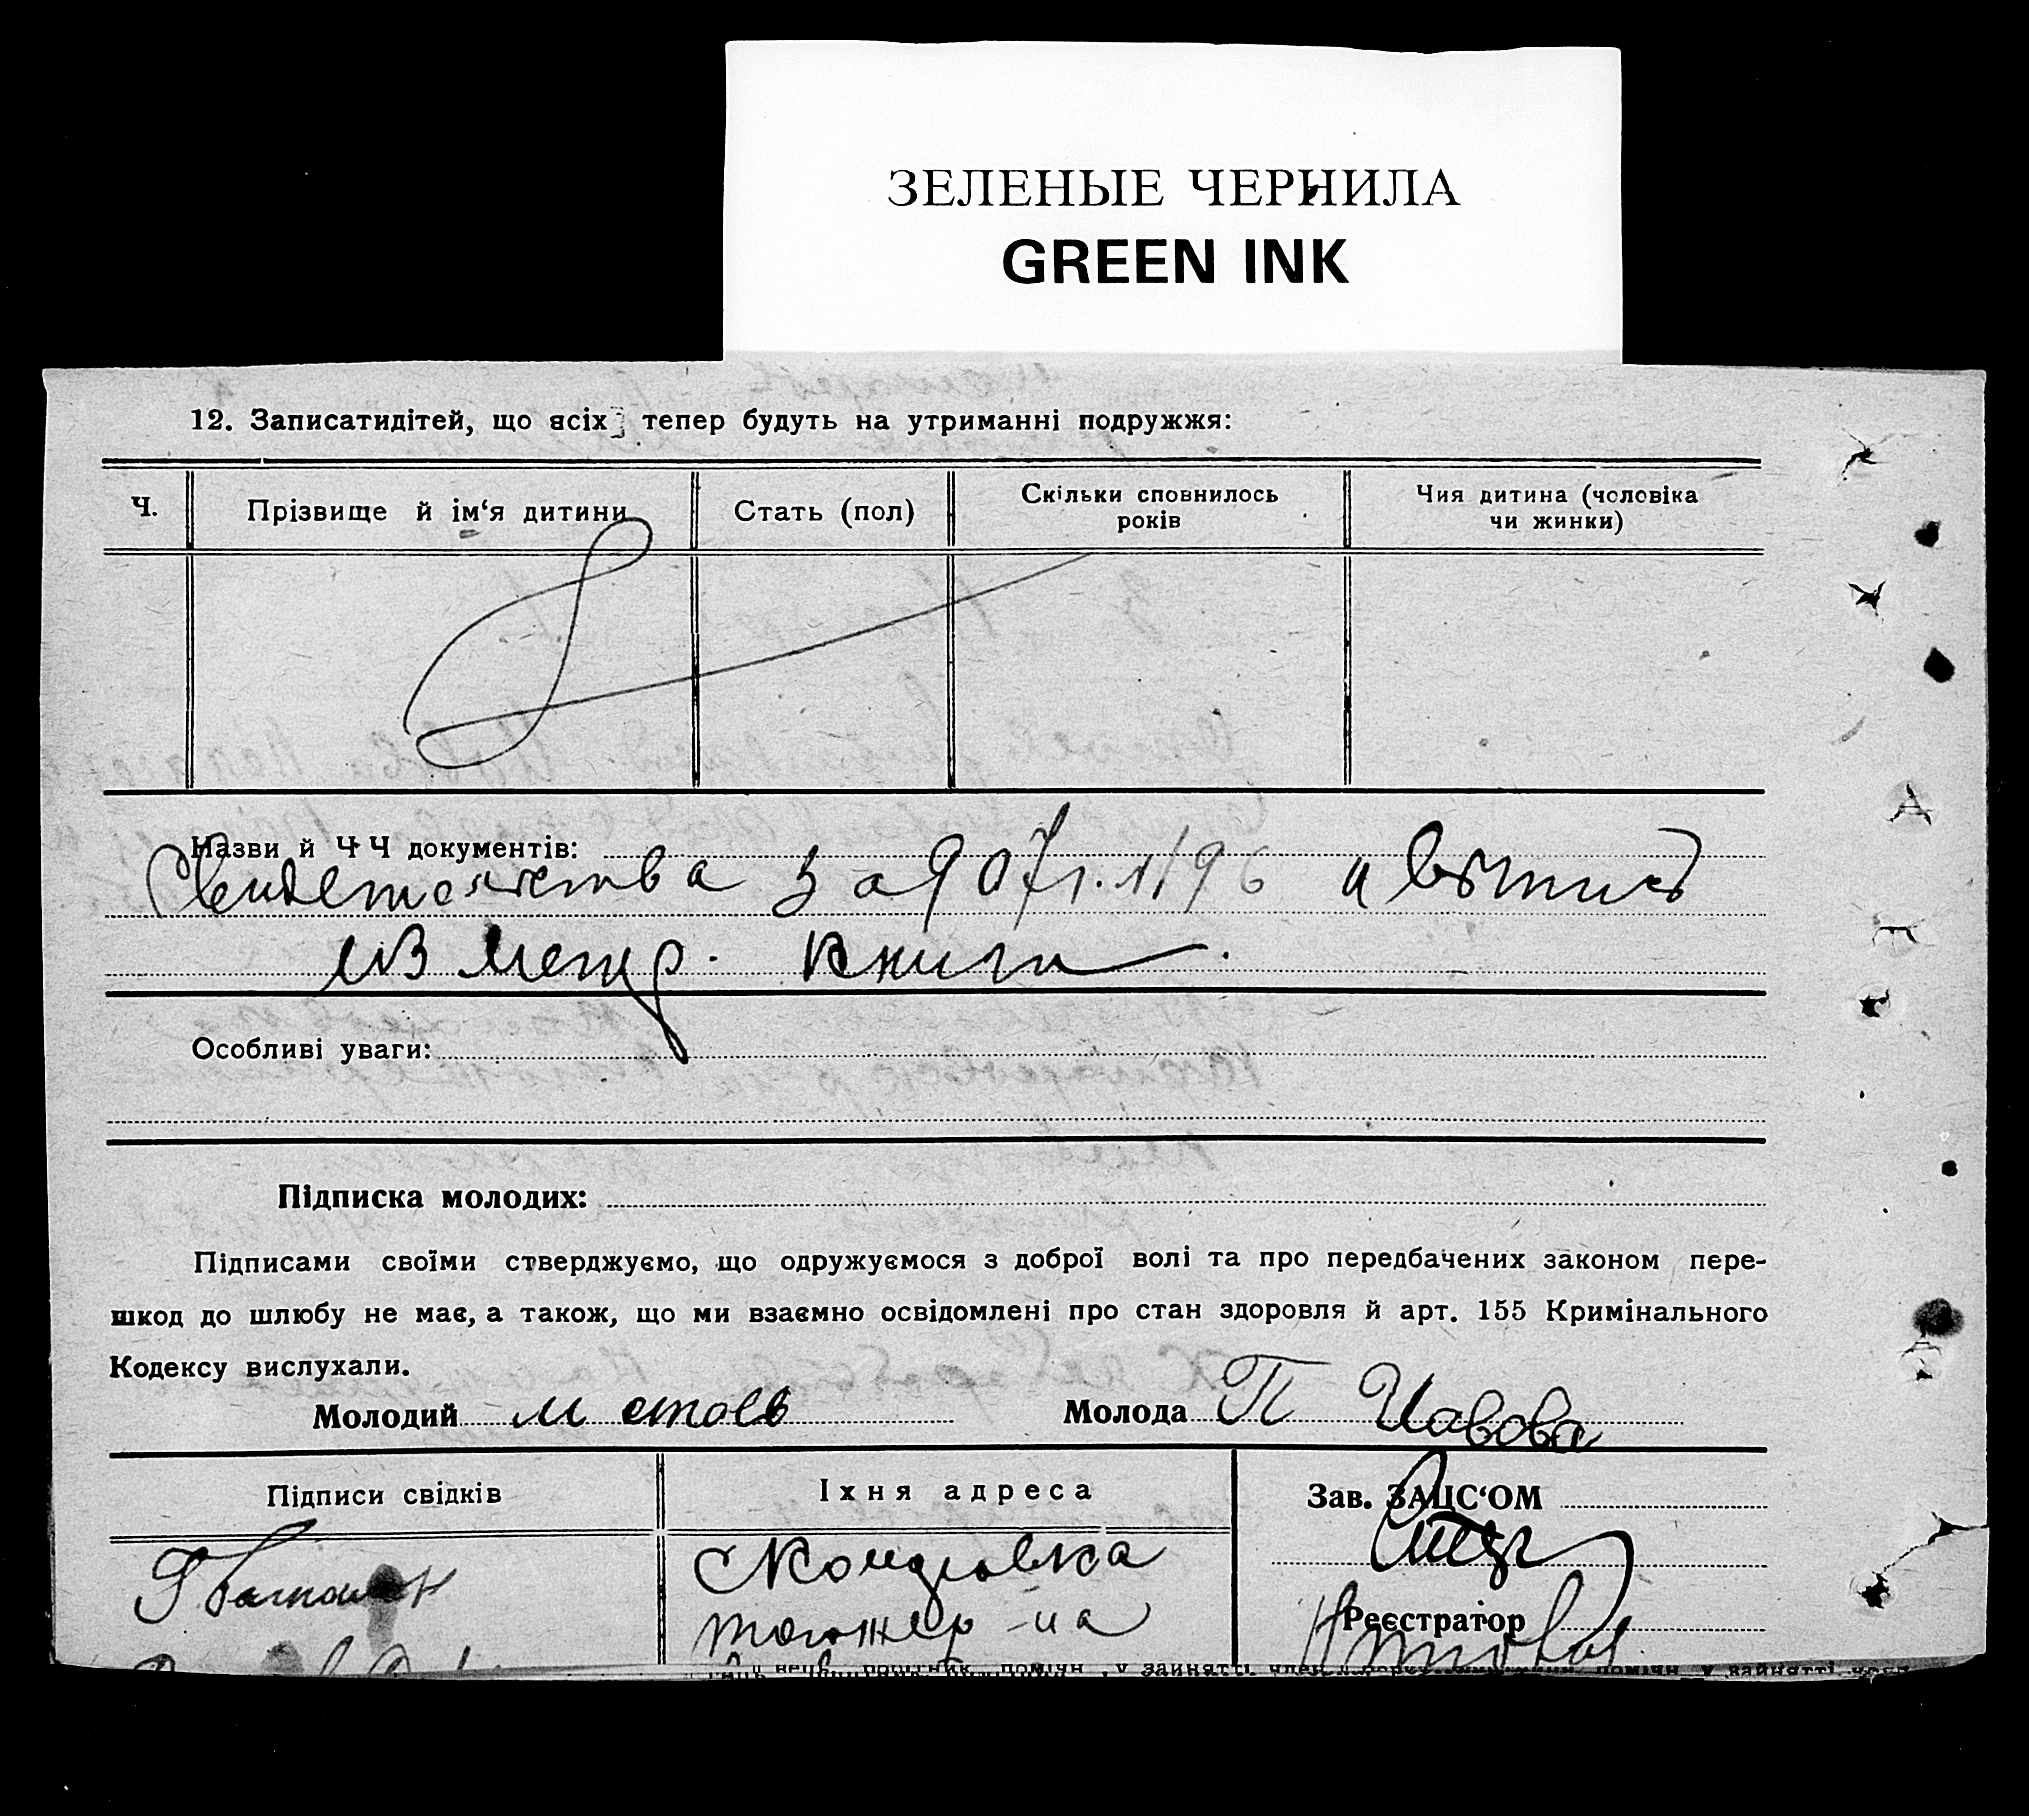 ЗЕЛЕНЫЕ ЧЕРНИЛА
GREEN INK
12. Записатидітей, що всіх тепер будуть на утриманні подружжя:
Ч.
Прізвище й ім‘я дитини
Стать (пол)
Скільки сповнилось
років
Чия дитина (чоловіка
чи жинки)
Назви й Ч Ч документів:
Свидетельства за 907 г. и
из метр. книги.
Особливі уваги:
Підписка молодих:
Підписами своїми стверджуємо, що одружуємося з доброї волі та про передбачених законом пере-
шкод до шлюбу не має, а також, що ми взаємно освідомлені про стан здоровля й арт. 155 Кримінального
Кодексу вислухали.
Молодий м стоев Молода П Иовова
Підписи свідків
Їхня адреса
Зав. ЗАЦС‘ОМ
Реєстратор